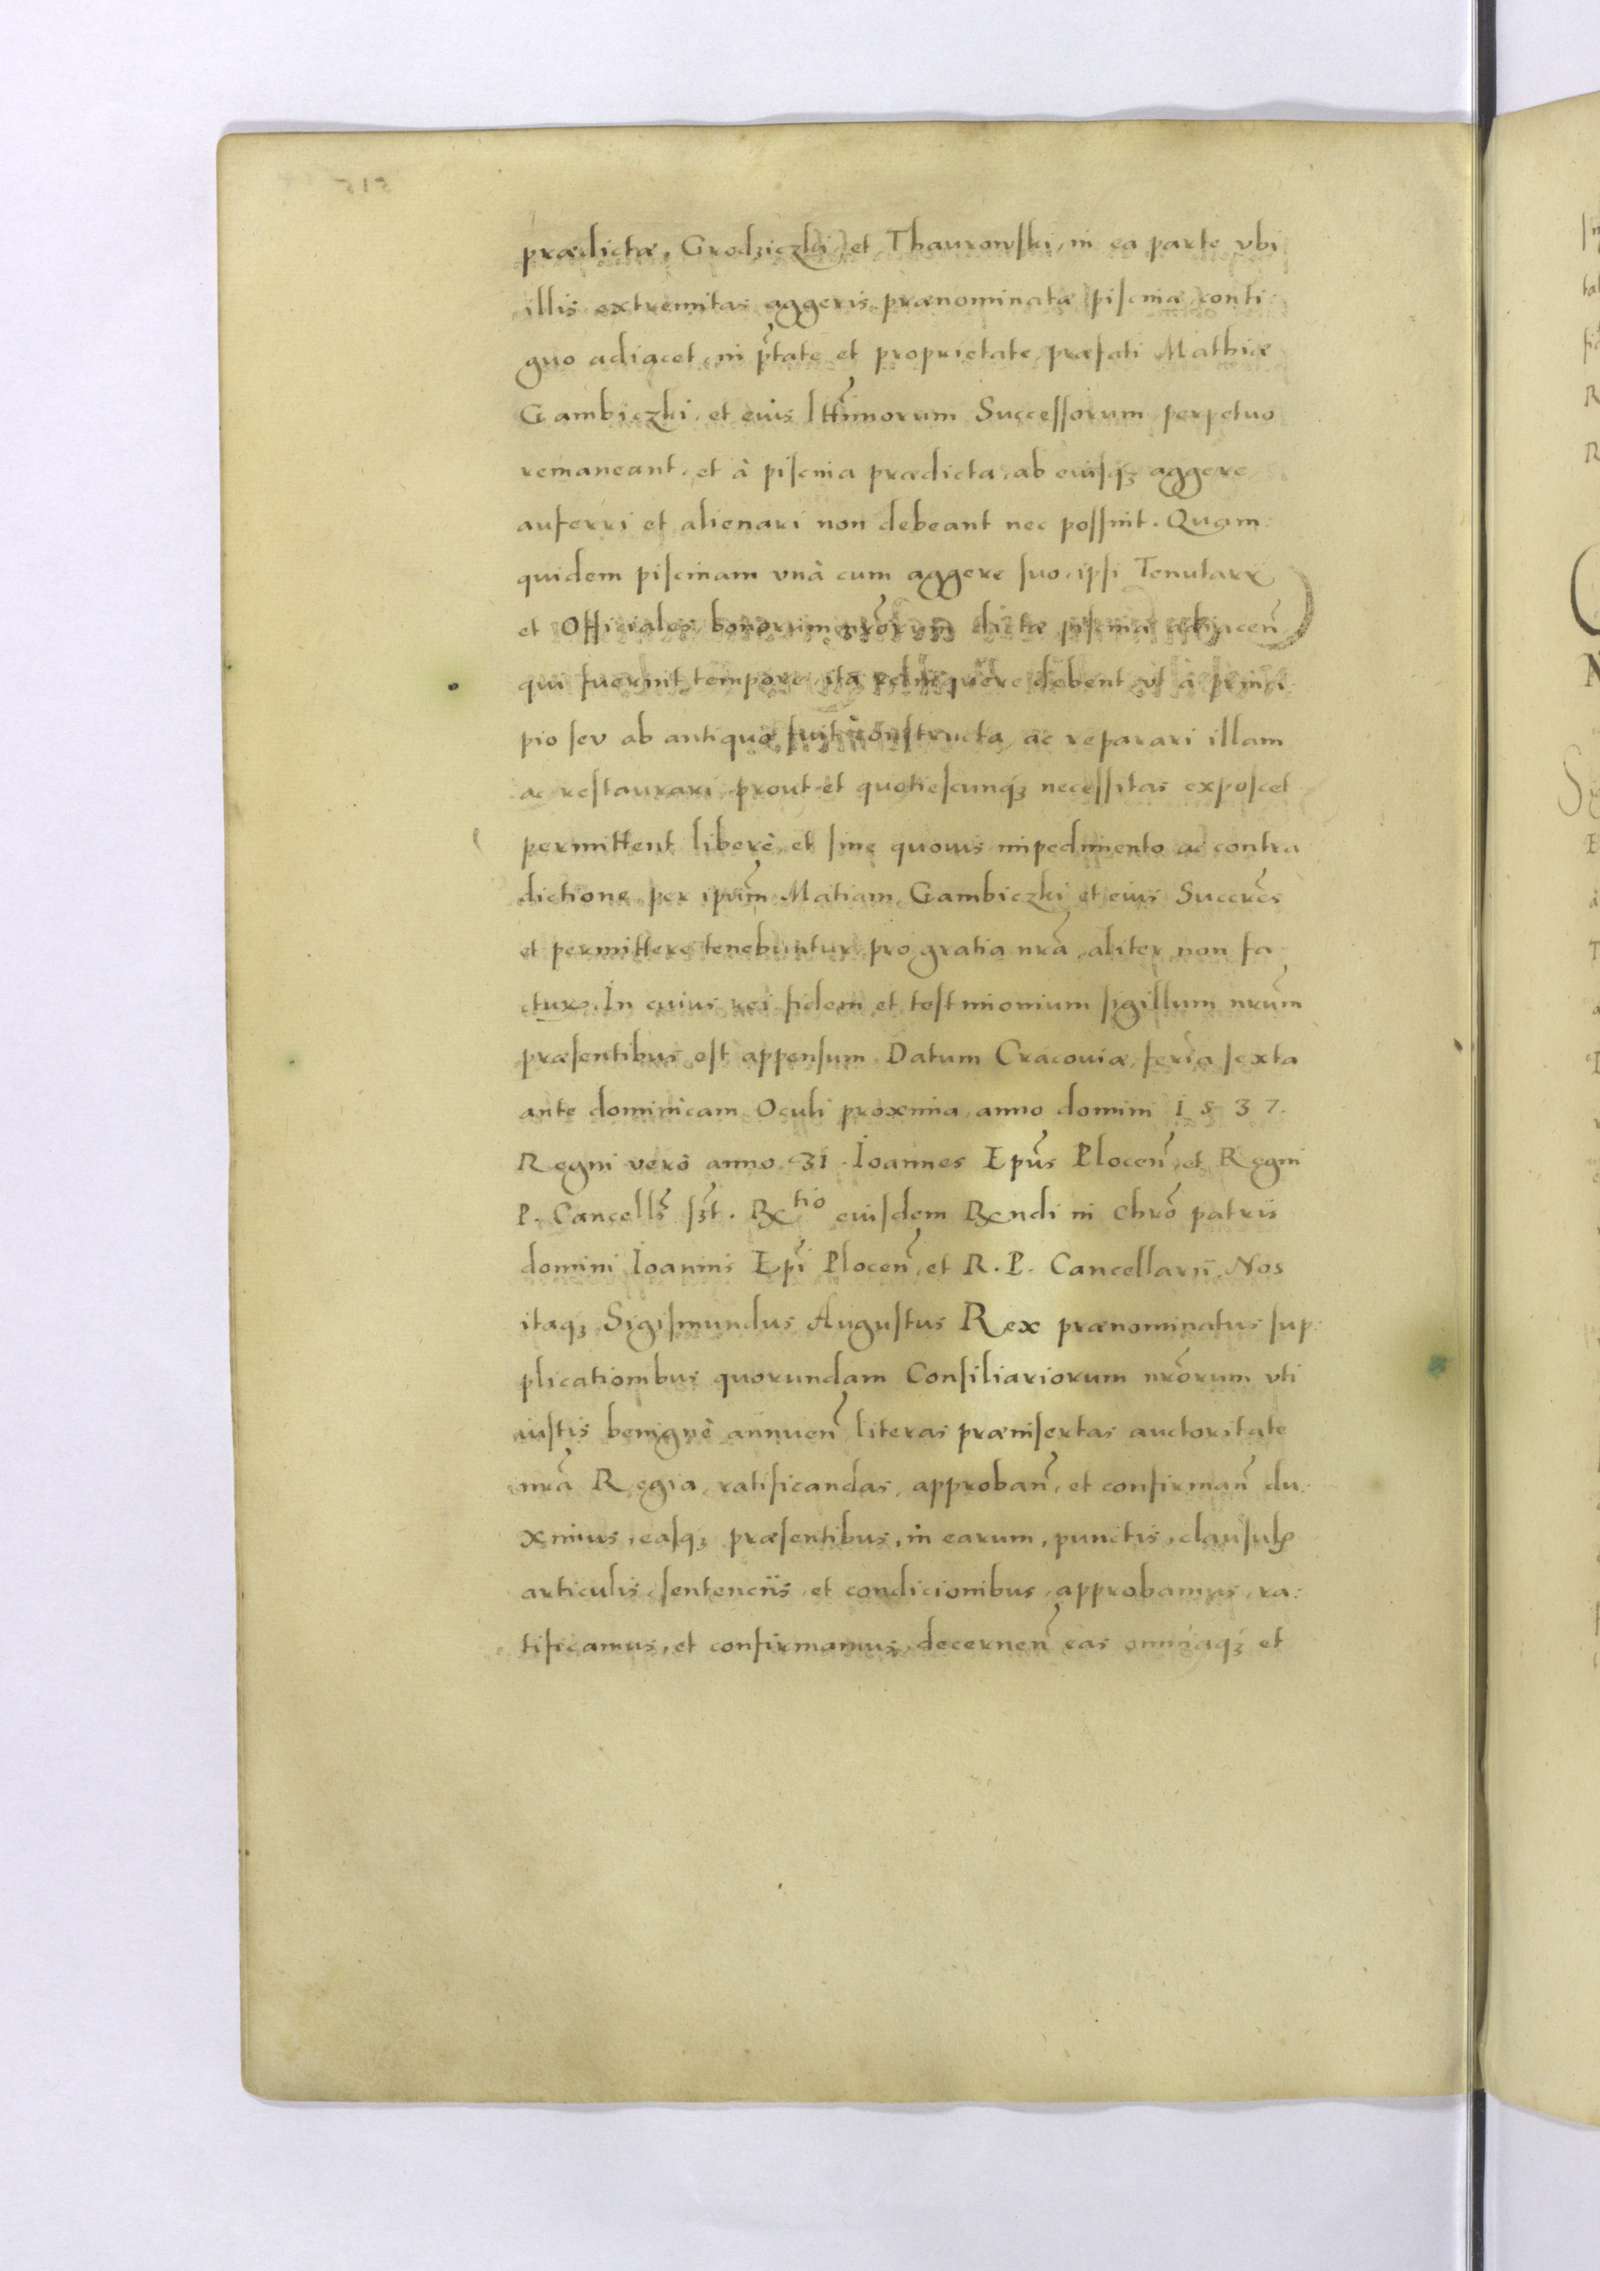 prædictæ, Grodziczki et Thaurowski, in ea parte vbi
illis extremitas aggeris prænominatæ piscinæ conti:
guo adiacet, in p̃tate et proprietate præfati Mathiæ
Gambiczki et eius lttimorum Successorum perpetuo
remaneant, et à piscina prædicta, ab eiusq; aggere
auferri et alienari non debeant nec possint. Quam:
quidem piscinam vnà cum aggere suo, ipsi Tenutarii
et Officiales bonorum nr̃orum dictæ piscinæ adiacen̄
qui fuerint tempore, ita relinquere debent vt à princi
pio seu ab antiquo fuit constructa, ac reparari illam
ac restaurari prout et quotiescunq; necessitas exposcet
permittent liberè et sine quouis impedimento ac contra
dictione per ipsum Matiam Gambiczki et eius Succres
et permittere tenebuntur pro gratia nr̃a, aliter non fa
ctur. In cuius rei fidem et testimonium sigillum nr̃um
præsentibus est appensum. Datum Cracouiæ, feria sexta
ante dominicam Oculi proxima, anno domini 1537.
Regni verò anno 31. Ioannes Ep̃us Plocen̄ et Regni
P. Cancells̃ sst. Rtio eiusdem Rndi in Chrõ patris
domini Ioannis Ep̃i Plocen̄ et R. P. Cancellarii. Nos
itaq; Sigismundus Augustus Rex prænominatus sup:
plicationibus quorundam Consiliariorum nr̃orum vti
iustis benignè annuen̄ literas præinsertas auctoritate
nr̃a Regia, ratificandas, approban̄, et confirman̄ du:
ximus, easq; præsentibus, in earum, punctis, clausulis
articulis, sentenciis et condicionibus, approbamus, ra:
tificamus, et confirmamus, decernen̄ eas omniaq; et